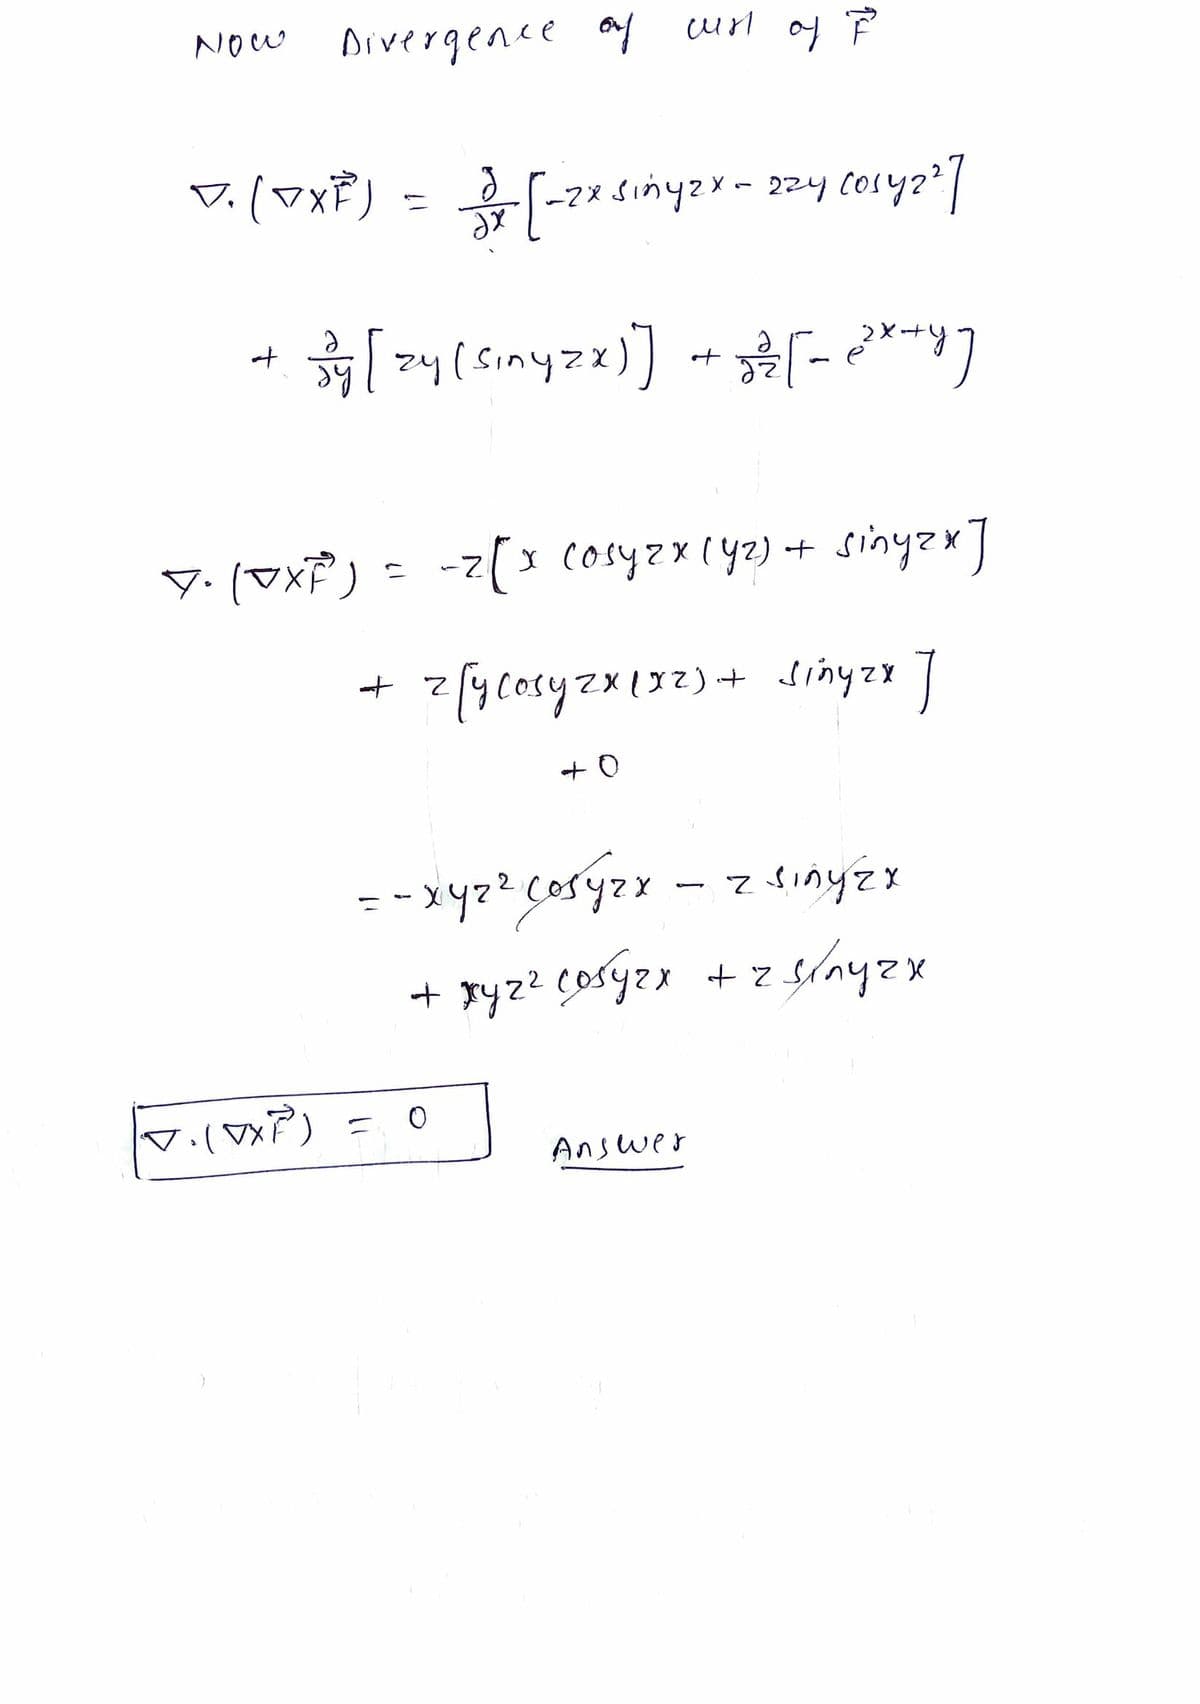 Now Divergence of curl of F⃗
∇.(∇×F⃗) = ∂/∂x [-zx sinyzx - 2zy cosyz²]
+ ∂/∂y [zy(sinyzx)] + ∂/∂z [- e^2x+y]
∇.(∇×F⃗) = -z[x cosyzx(yz) + sinyzx]
+ z[ycosyzx(xz) + sinyzx]
+0
= -xyz² cosyzx - z sinyzx
+ xyz² cosyzx + z sinyzx
∇.(∇×F⃗) = 0 Answer